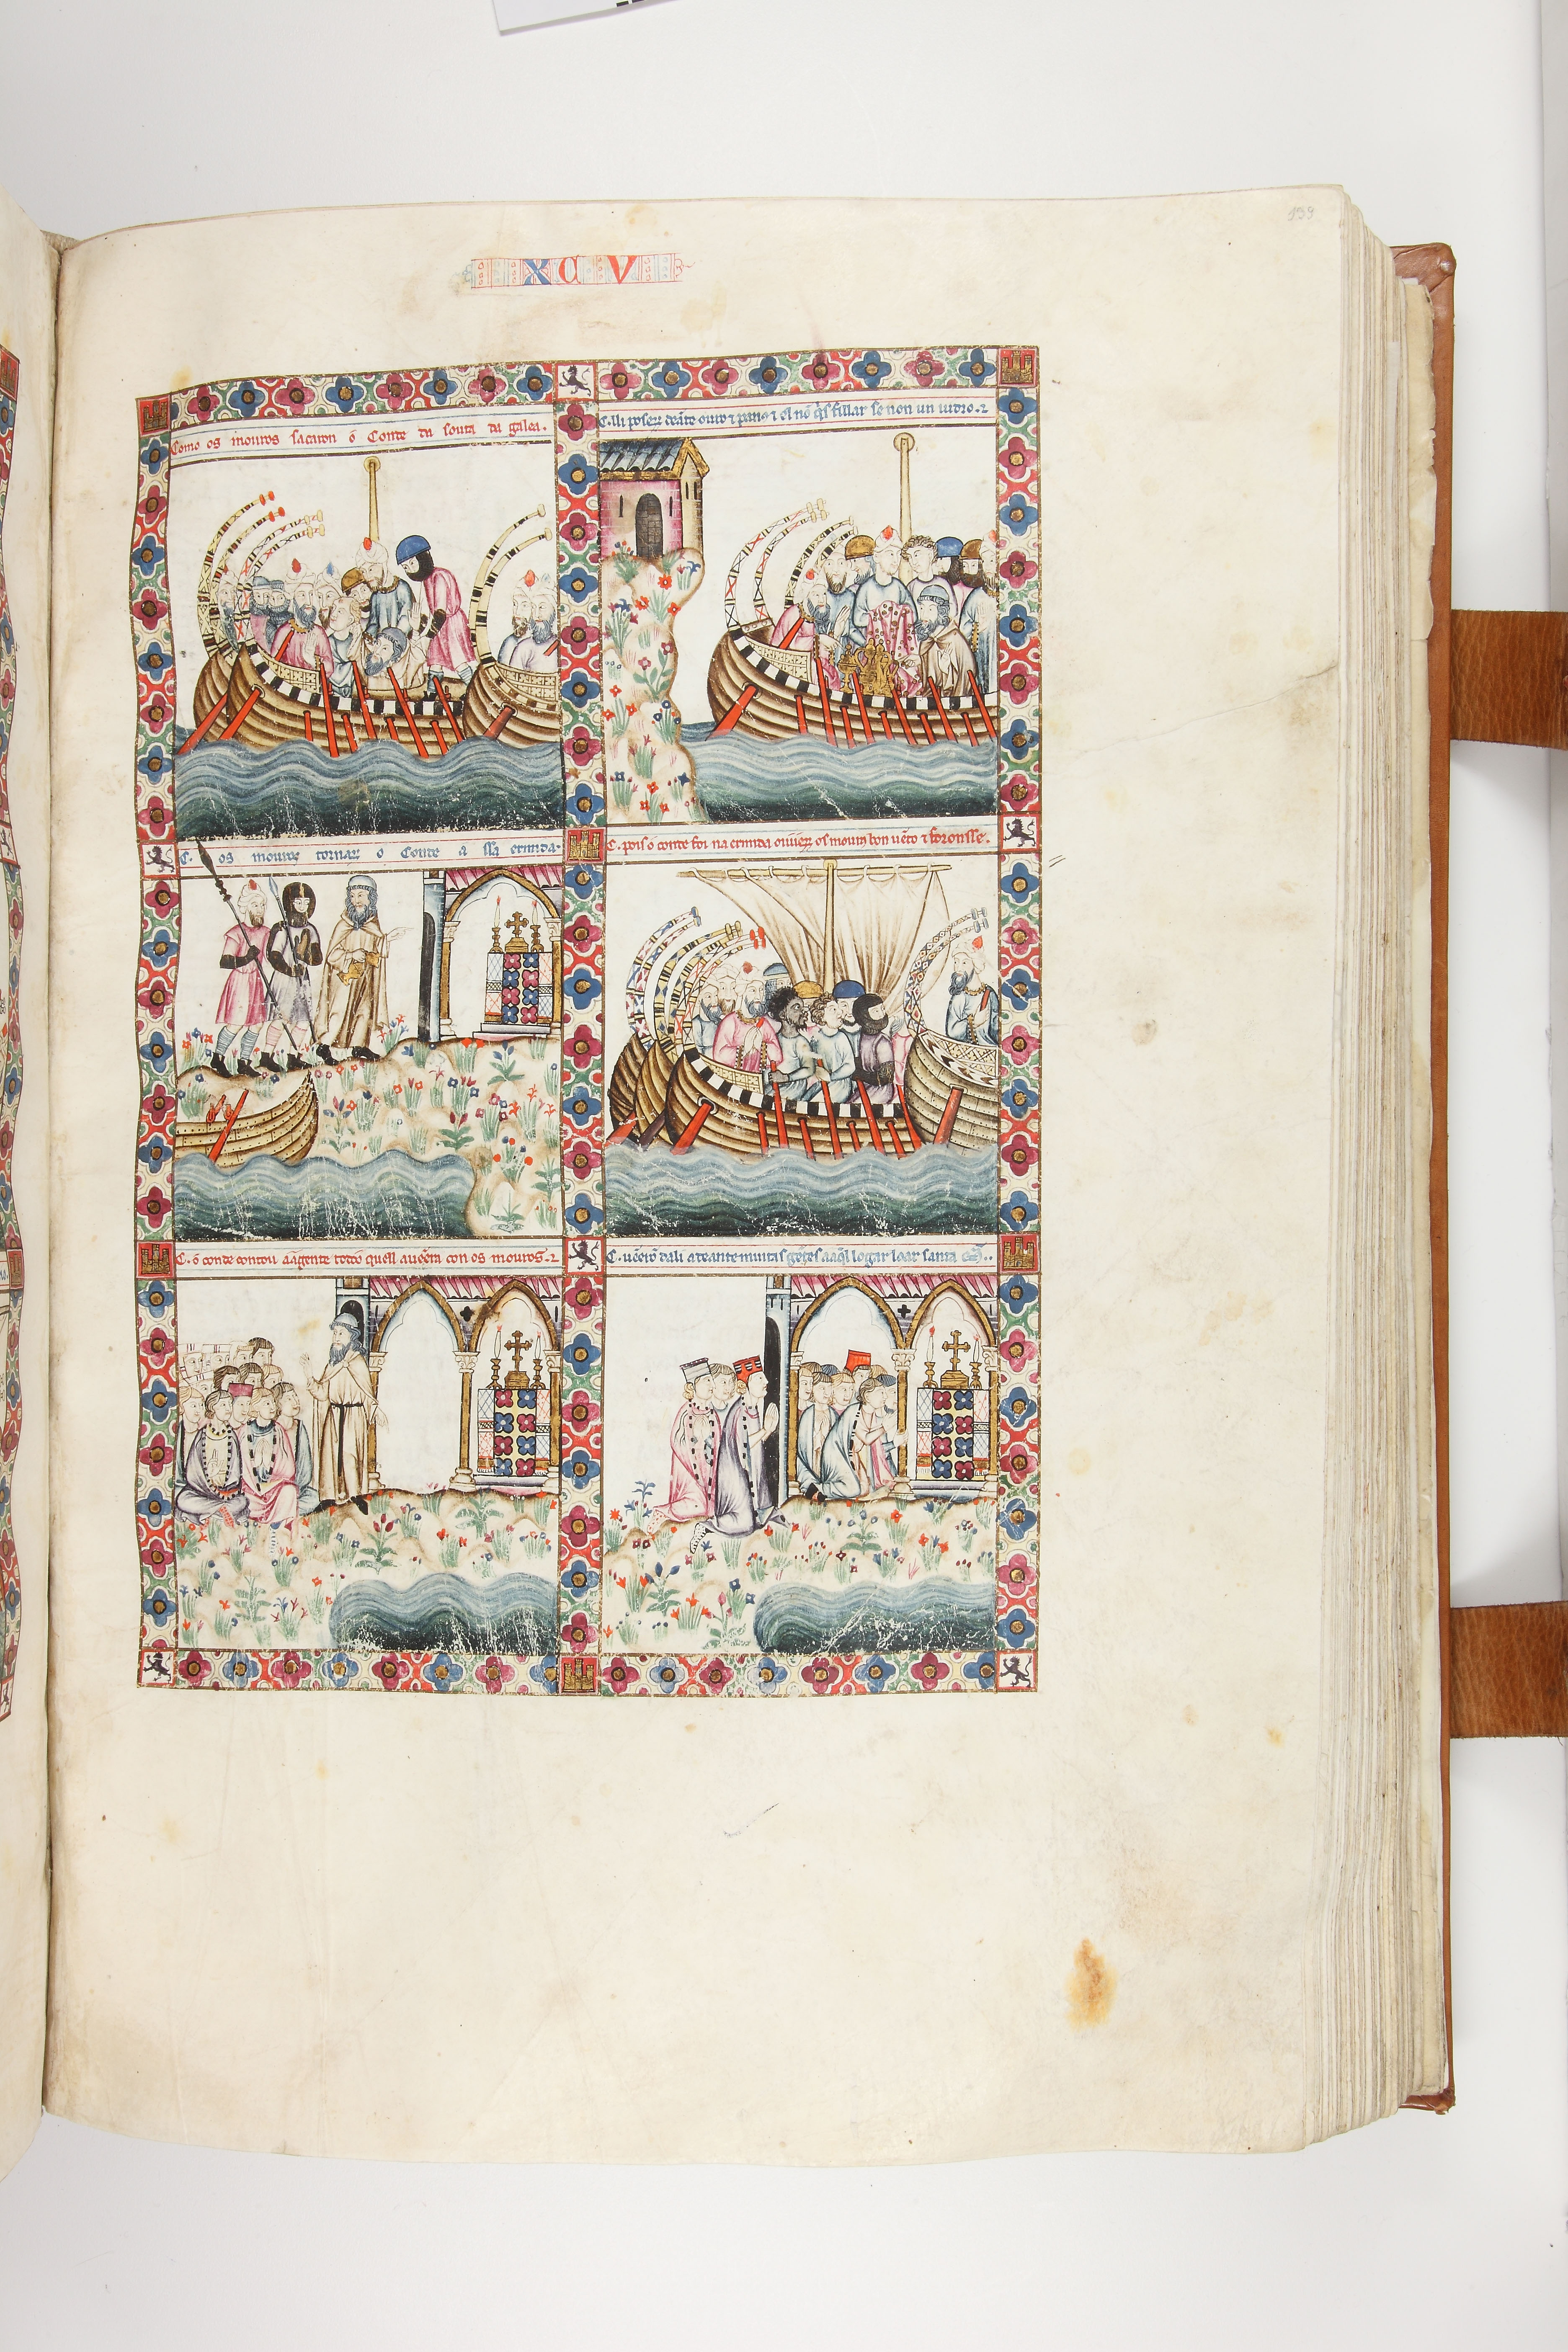 139
XCV
Como os mouros sacaron o Conte da sota da galea.
C. lli poserõ deãte ouro ⁊ panos ⁊ el nõ q̇s fillar se non un uidro. ⁊
C. os mouros tornarõ o Conte a ssa ermida.
C. pois o conte foi na ermida ouuerõ os mouros bon uẽto ⁊ foronsse.
C. o conde contou aa gente todo quell auẽera con os mouros. ⁊
C. uẽerõ dali adeante muitas gẽtes aaq̃l logar loar santa